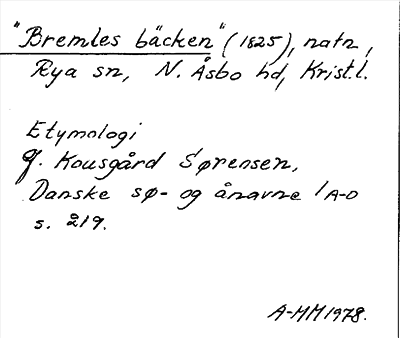 "Bremles bäcken" (1825), natn,
Rya sn, N. Åsbo hd, Krist.l.
Etymologi
J. Kousgård Sørensen,
Danske sø- og ånavne 1 A-D
s. 219.
A-MM 1978.